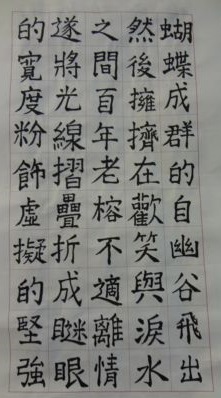 蝴蝶成群的自幽谷飛出
然後擁擠在歡笑與淚水
之間百年老榕不適離情
遂將光線摺疊折成瞇眼
的寬度粉飾虛擬的堅強